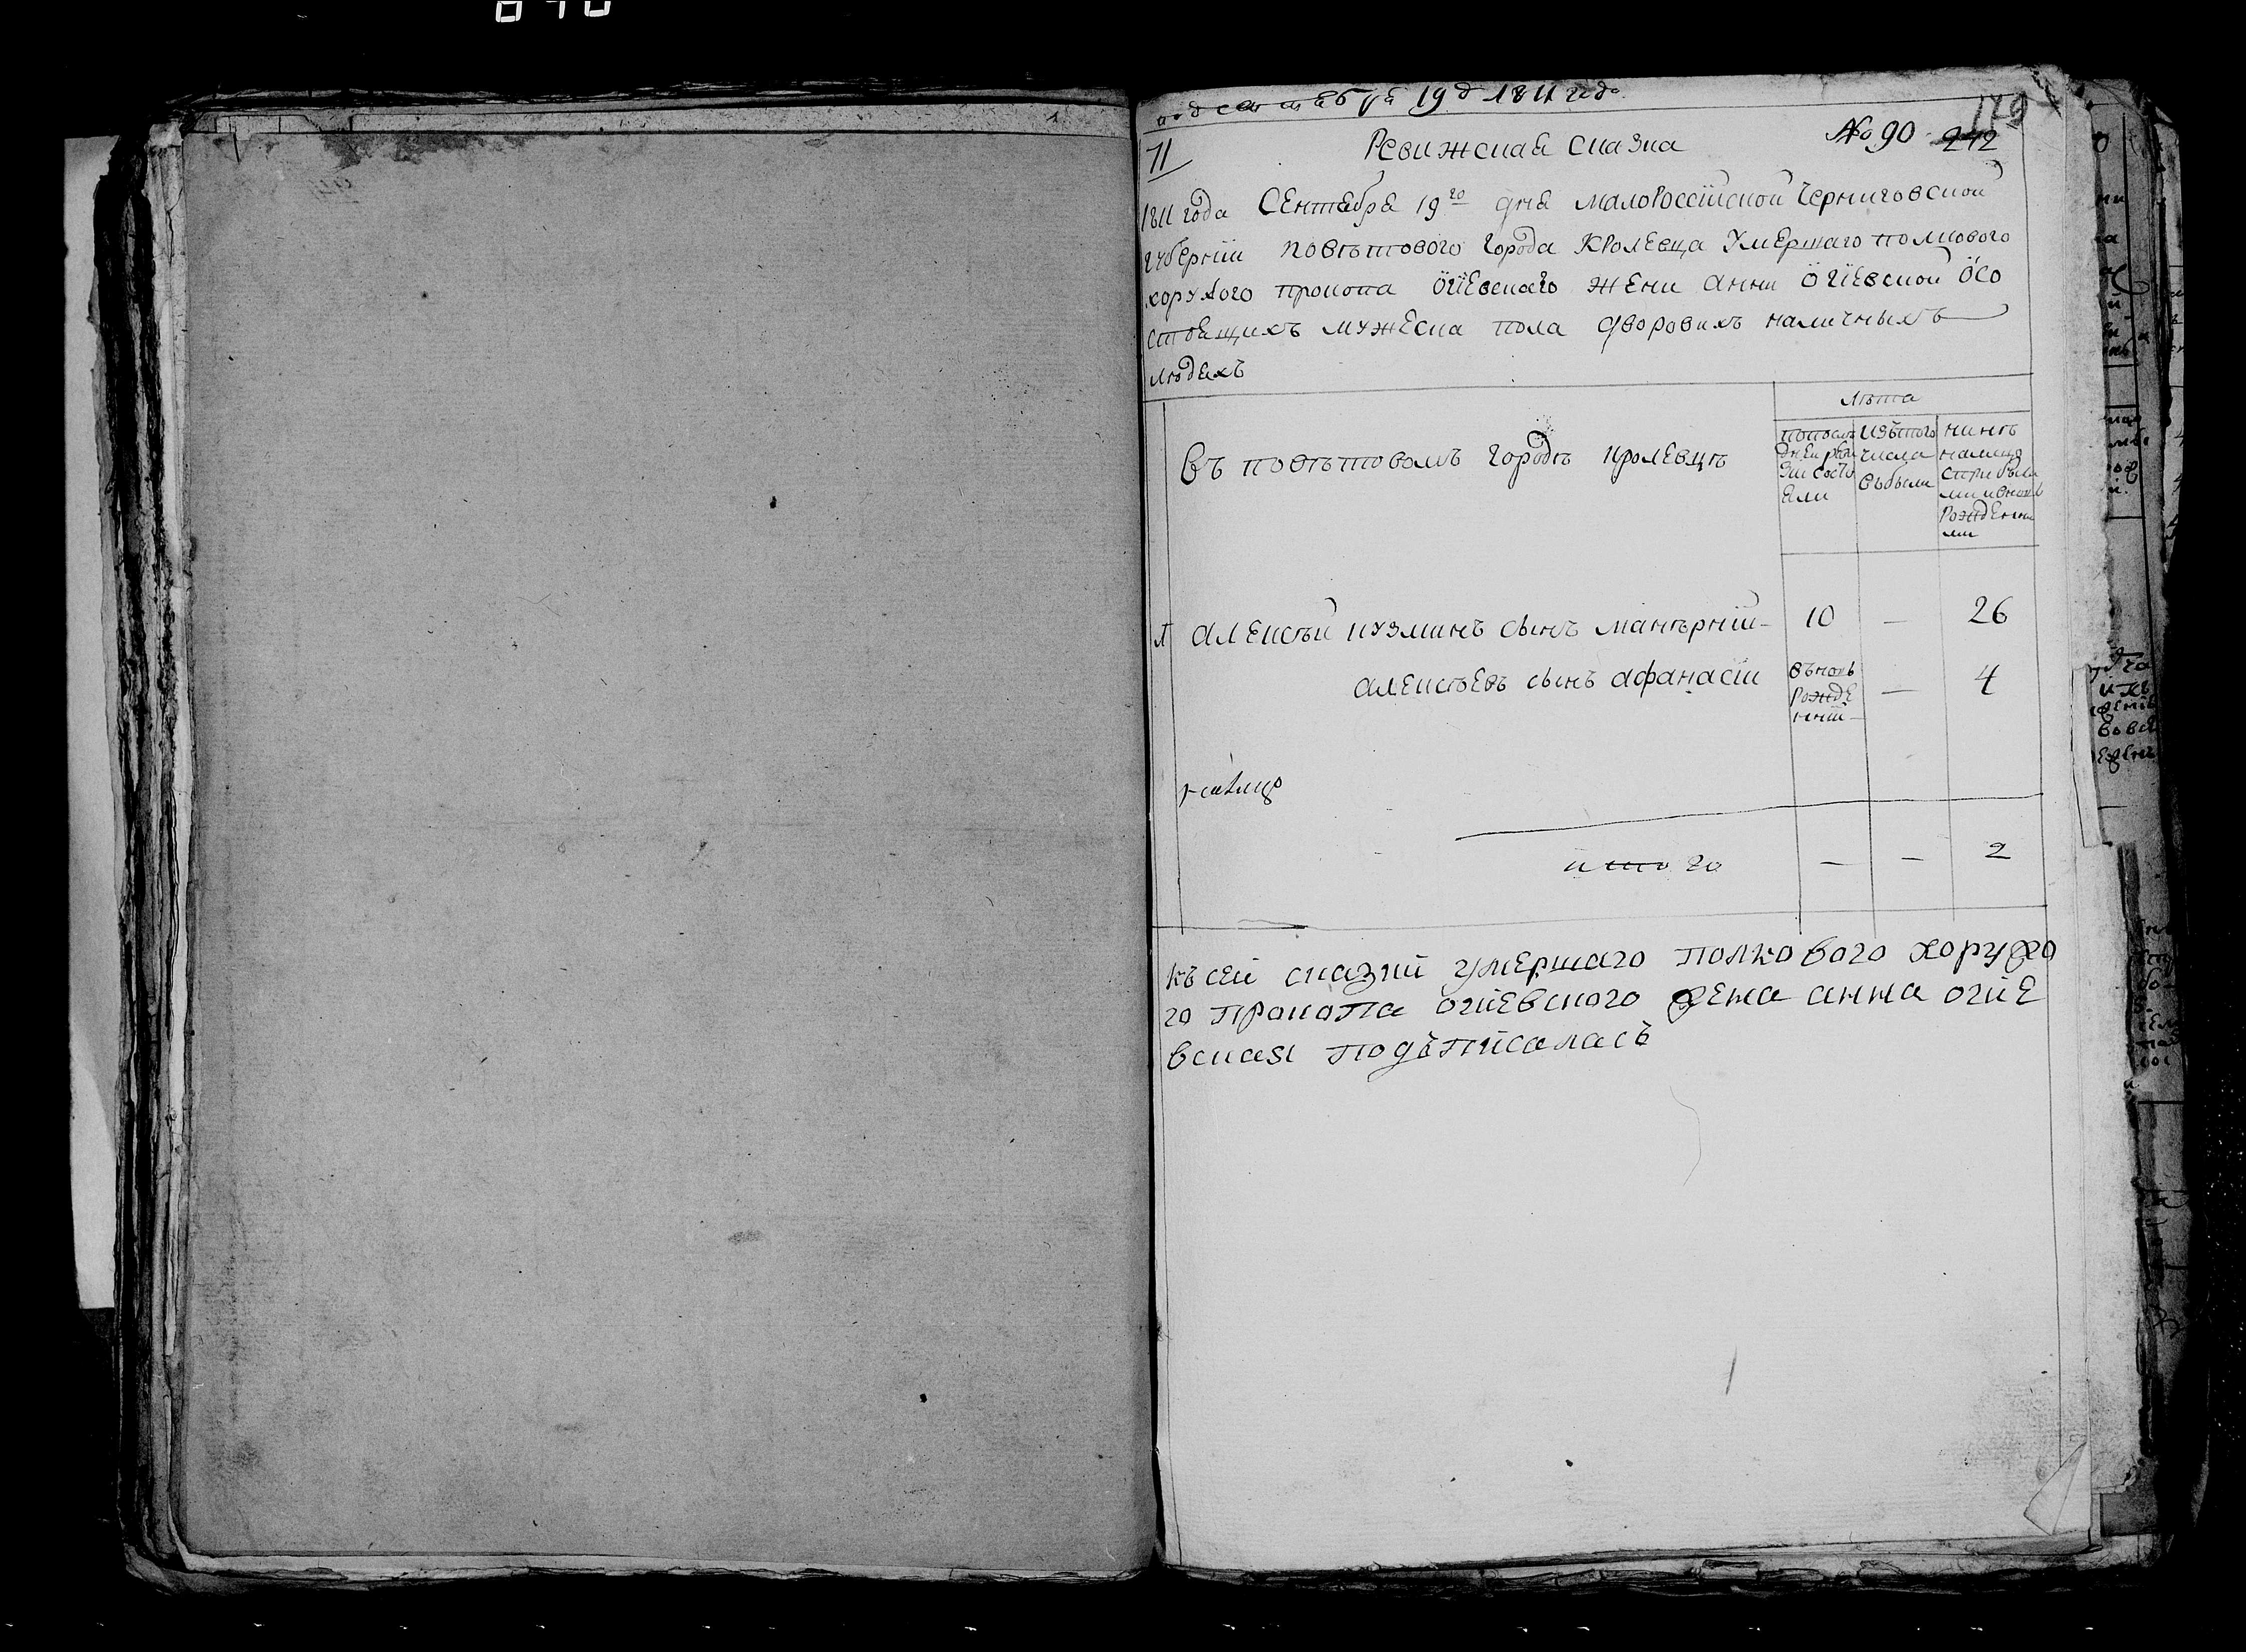 под сентебря 19 д 1811 года
179
11
Ревижская сказка
№ 90 212
1811 года Сентября 19го дня Малороссійской Черниговской
губерніи повѣтового города Кролевца умершаго полкового
хоружого прокопа огіевскаго жени анни огіевской ѡ со
стоящихъ мужеска пола дворовихъ наличныхъ
людехъ
лѣта
Въ повѣтовомъ городѣ кролевцѣ
по послѣ
дней реви
зіи состо
яли
изъ того
числа
выбыли
нинѣ
налицо
с прибыли
ми и вновь
рожденни
ми
1 алексѣй кузминъ сынъ манѣрній 10 — 26
алексѣевъ сынъ афанасій въновь рожде нній — 4
итого — — 2
къ сей сказкй умершаго полкового хоружо
го прокопа огіевского жена анна огіе
вская подъпйсаласъ